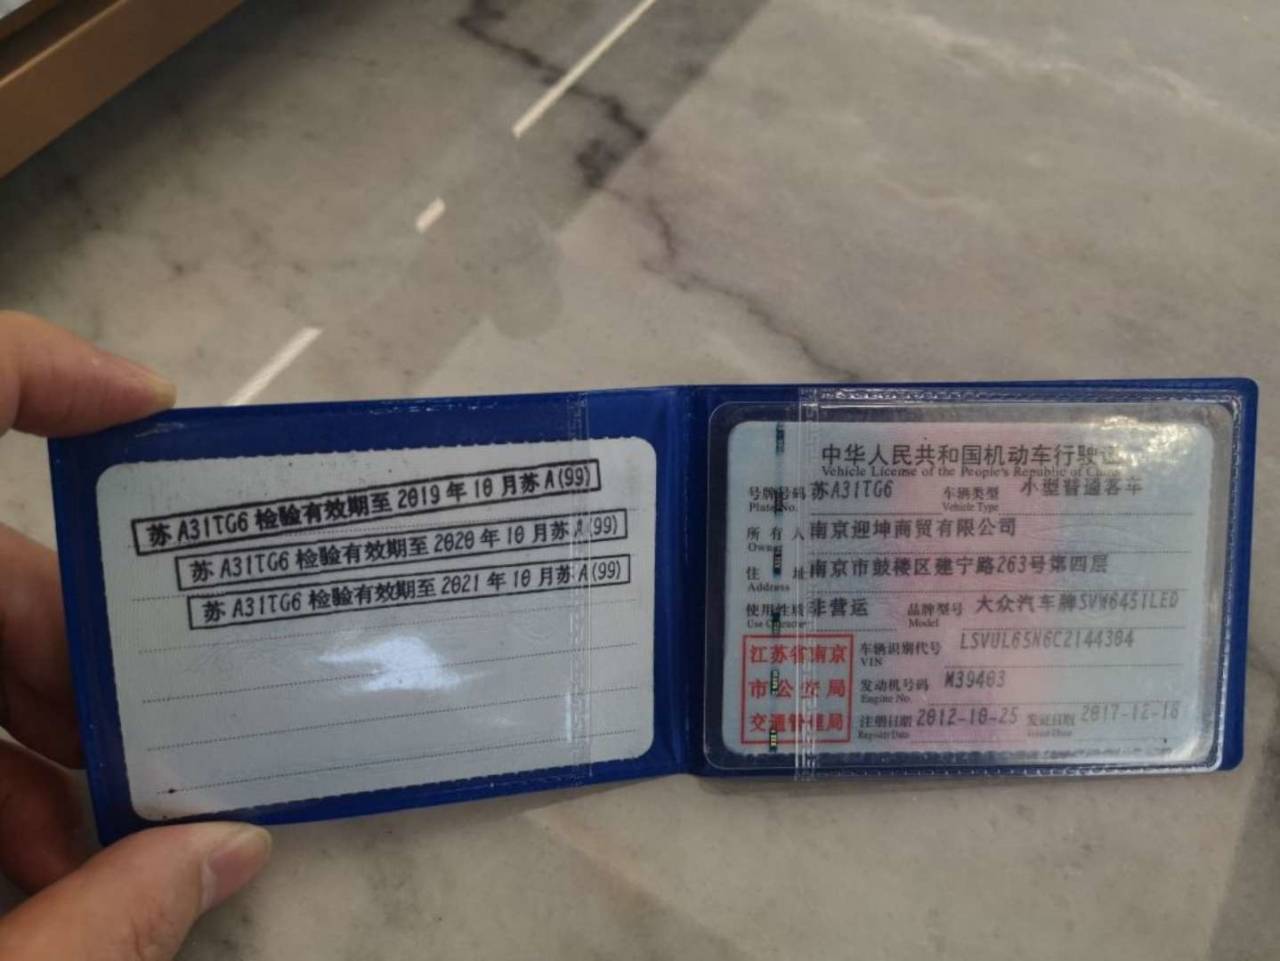 苏A31TG6检验有效期至2019年10月苏A(99)
苏A31TG6检验有效期至2020年10月苏A(99)
苏A31TG6检验有效期至2021年10月苏A(99)
中华人民共和国机动车行驶证
Vehicle License of the People's Republic of China
号牌号码 苏A31TG6 车辆类型 小型普通客车
Plate No. Vehicle Type
所有人 南京迎坤商贸有限公司
Owner
住址 南京市鼓楼区建宁路263号第四层
Address
使用性质 非营运 品牌型号 大众汽车牌SVW6451LED
Use Character Model
江苏省南京
市公安局
交通管理局
车辆识别代号 LSVUL65N6C2144304
VIN
发动机号码 M39403
Engine No.
注册日期 2012-10-25 发证日期 2017-12-18
Register Date Issue Date